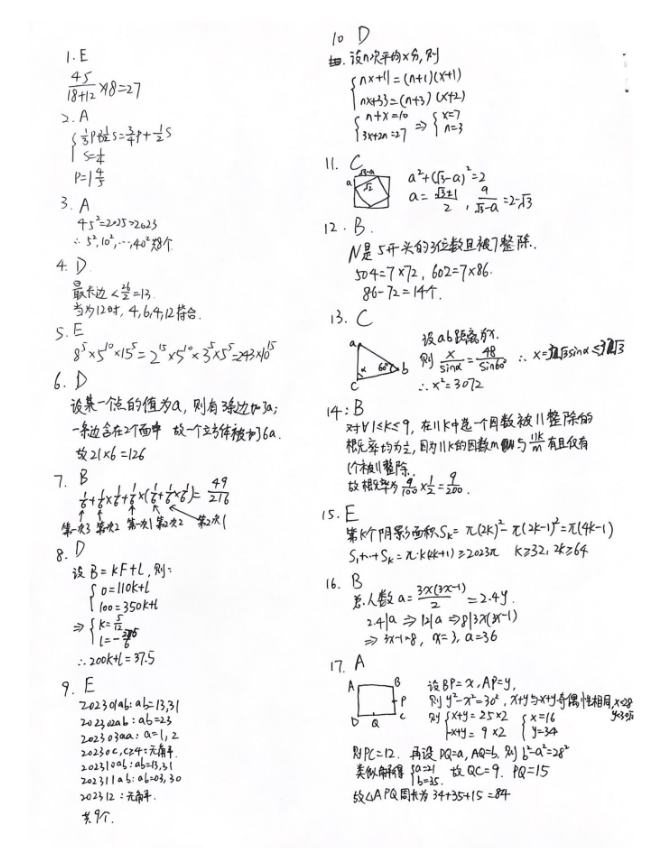 1. E
45/(18+12) ×18=27
2. A
{ 1/3P+1/2S=3/4P+1/2S
S=1/4
P=1 4/5
3. A
45²=2025>2023
∴5²,10²,…,40²共8个
4. D
最长边<26/2=13.
当为12时, 4,6,4,12符合.
5. E
8⁵×5¹⁰×15⁵=2¹⁵×5¹⁰×3⁵×5⁵=243×10¹⁵
6. D
设某一个点的值为a, 则有3条边加了a;
一条边含在2个面中 故一个立方体被加了6a.
故21×6=126
7. B
1/6+1/6×1/6+1/6×(1/6+1/6×1/6)=49/216
第一次3 第一次2 第一次1 第二次2 第二次1
8. D
设B=kF+l, 则:
{ 0=110k+l
100=350k+l
⇒{ k=5/12
∴200k+l=37.5
9. E
202301ab: ab=13,31
202302ab: ab=23
202303aa: a=1,2
20230c, c≥4: 无解.
202310ab: ab=13,31
202311ab: ab=03,30
202312: 无解.
共9个.
10 D
设n次平均x分, 则
{ nx+11=(n+1)(x+1)
nx+33=(n+3)(x+2)
{ n+x=10
3x+2n=27 ⇒ { x=7
n=3
11. C
√3-a
a √2
a²+(√3-a)²=2
a=(√3±1)/2, a/(√3-a)=2-√3
12. B.
N是5开头的3位数且被7整除.
504=7×72, 602=7×86.
86-72=14个.
13. C
a b c α 60°
设ab距离为x.
则 x/sinα=48/sin60° ∴x=32√3sinα≤32√3
∴x²=3072
14: B
对∀1≤k≤9, 在11k中选一个因数被11整除的
概率均为1/2, 因为11k的因数m与11k/m有且仅有
1个被11整除.
故概率为9/100×1/2=9/200.
15. E
第k个阴影面积Sₖ=π(2k)²-π(2k-1)²=π(4k-1)
S₁+…+Sₖ=π·k(2k+1)≥2023π k≥32, 2k≥64
16. B
总人数a=3x(3x-1)/2=2.4y.
2.4|a ⇒12|a ⇒8|3x(3x-1)
⇒3x-1=8, x=3, a=36
17. A
A B P C Q D
设BP=x, AP=y,
则y²-x²=30², x+y与x-y奇偶性相同, x<28
则{ x+y=25×2
-x+y=9×2 { x=16
y=34
则PC=12. 再设DQ=a, AQ=b, 则b²-a²=28²
类似解得{ a=21
b=35. 故QC=9. PQ=15
故△APQ周长为34+35+15=84